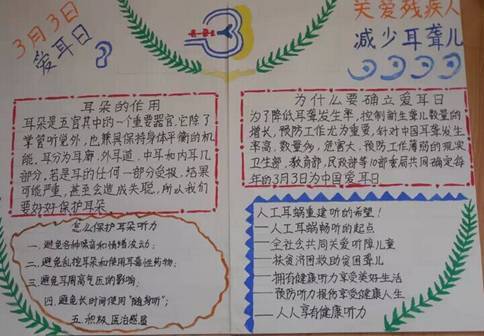 3月3日
爱耳日
关爱残疾人
减少耳聋儿
耳朵的作用
耳朵是五官其中的一个重要器官,它除了
掌管听觉外,也兼具保持身体平衡的机
能,耳分为耳廓,外耳道,中耳和内耳几
部分,若是耳的任何一部分受损,结果
可能严重,甚至会造成失聪,所以我们
要好好保护耳朵
为什么要确立爱耳日
为了降低耳聋发生率,控制新生聋儿数量的
增长,预防工作尤为重要,针对中国耳聋发生
率高,数量多,危害大,预防工作薄弱的现实
卫生部,教育部,民政部等10部委局共同确定每
年的3月3日为中国爱耳日
怎么保护耳朵听力
一.避免各种噪音和情绪波动;
二.避免乱挖耳朵和使用耳毒性药物;
三.避免耳周高气压的影响.
四.避免长时间使用"随身听";
五.积极医治感冒
人工耳蜗重建听的希望!
—人工耳蜗畅听的起点
—全社会共同关爱听障儿童
—扶贫济困救助贫困聋儿
—拥有健康听力享受美好生活
—预防听力损伤享受健康人生
—人人享有健康听力